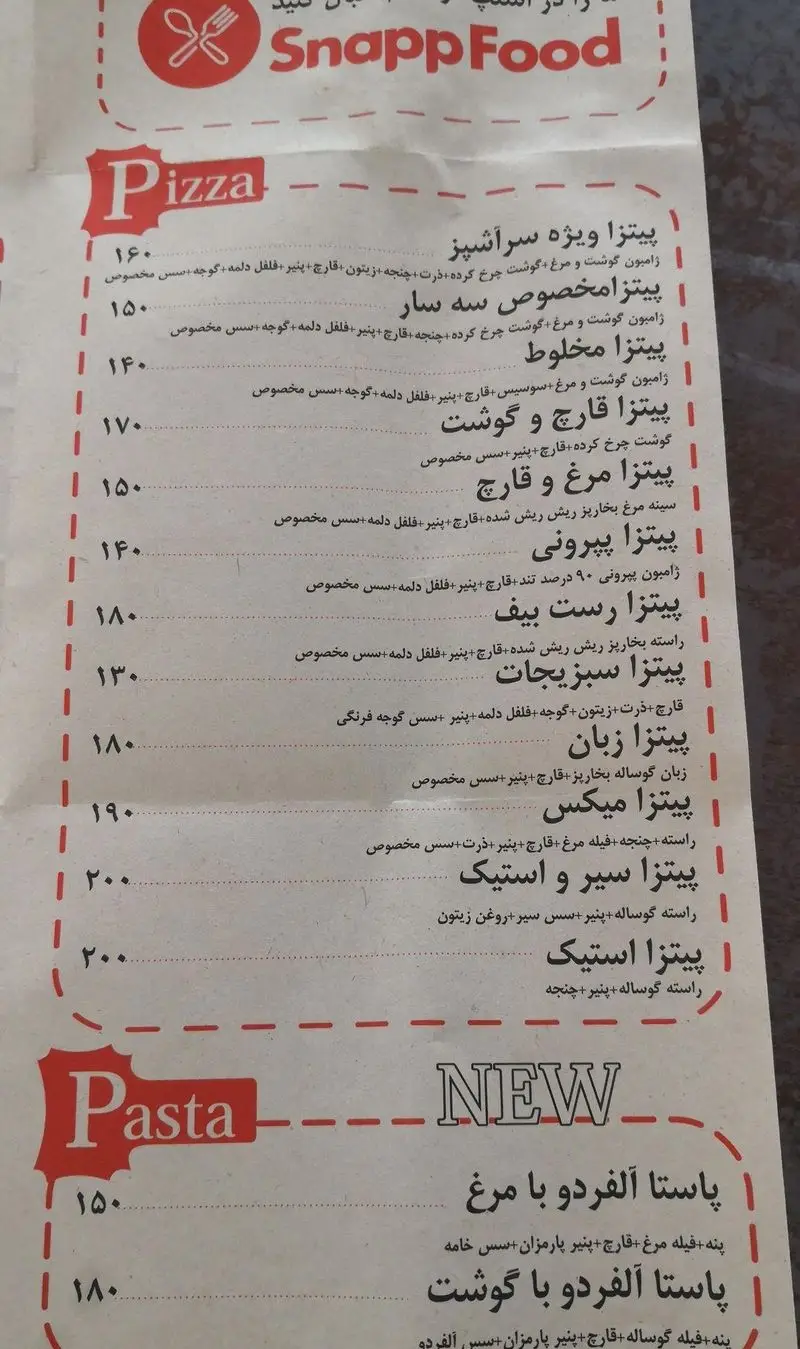 SnappFood
Pizza
پیتزا ویژه سرآشپز ۱۶۰
ژامبون گوشت و مرغ+گوشت چرخ کرده+ذرت+چنجه+زیتون+قارچ+پنیر+فلفل دلمه+گوجه+سس مخصوص
پیتزامخصوص سه سار ۱۵۰
ژامبون گوشت و مرغ+گوشت چرخ کرده+چنجه+قارچ+پنیر+فلفل دلمه+گوجه+سس مخصوص
پیتزا مخلوط ۱۴۰
ژامبون گوشت و مرغ+سوسیس+قارچ+پنیر+فلفل دلمه+گوجه+سس مخصوص
پیتزا قارچ و گوشت ۱۷۰
گوشت چرخ کرده+قارچ+پنیر+سس مخصوص
پیتزا مرغ و قارچ ۱۵۰
سینه مرغ بخارپز ریش ریش شده+قارچ+پنیر+فلفل دلمه+سس مخصوص
پیتزا پپرونی ۱۴۰
ژامبون پپرونی ۹۰ درصد تند+قارچ+پنیر+فلفل دلمه+سس مخصوص
پیتزا رست بیف ۱۸۰
راسته بخارپز ریش ریش شده+قارچ+پنیر+فلفل دلمه+سس مخصوص
پیتزا سبزیجات ۱۳۰
قارچ+ذرت+زیتون+گوجه+فلفل دلمه+پنیر +سس گوجه فرنگی
پیتزا زبان ۱۸۰
زبان گوساله بخارپز+قارچ+پنیر+سس مخصوص
پیتزا میکس ۱۹۰
راسته+چنجه+فیله مرغ+قارچ+پنیر+ذرت+سس مخصوص
پیتزا سیر و استیک ۲۰۰
راسته گوساله+پنیر+سس سیر+روغن زیتون
پیتزا استیک ۲۰۰
راسته گوساله+پنیر+چنجه
Pasta NEW
پاستا آلفردو با مرغ ۱۵۰
پنه+فیله مرغ+قارچ+پنیر پارمزان+سس خامه
پاستا آلفردو با گوشت ۱۸۰
پنه+فیله گوساله+قارچ+پنیر پارمزان+سس آلفردو